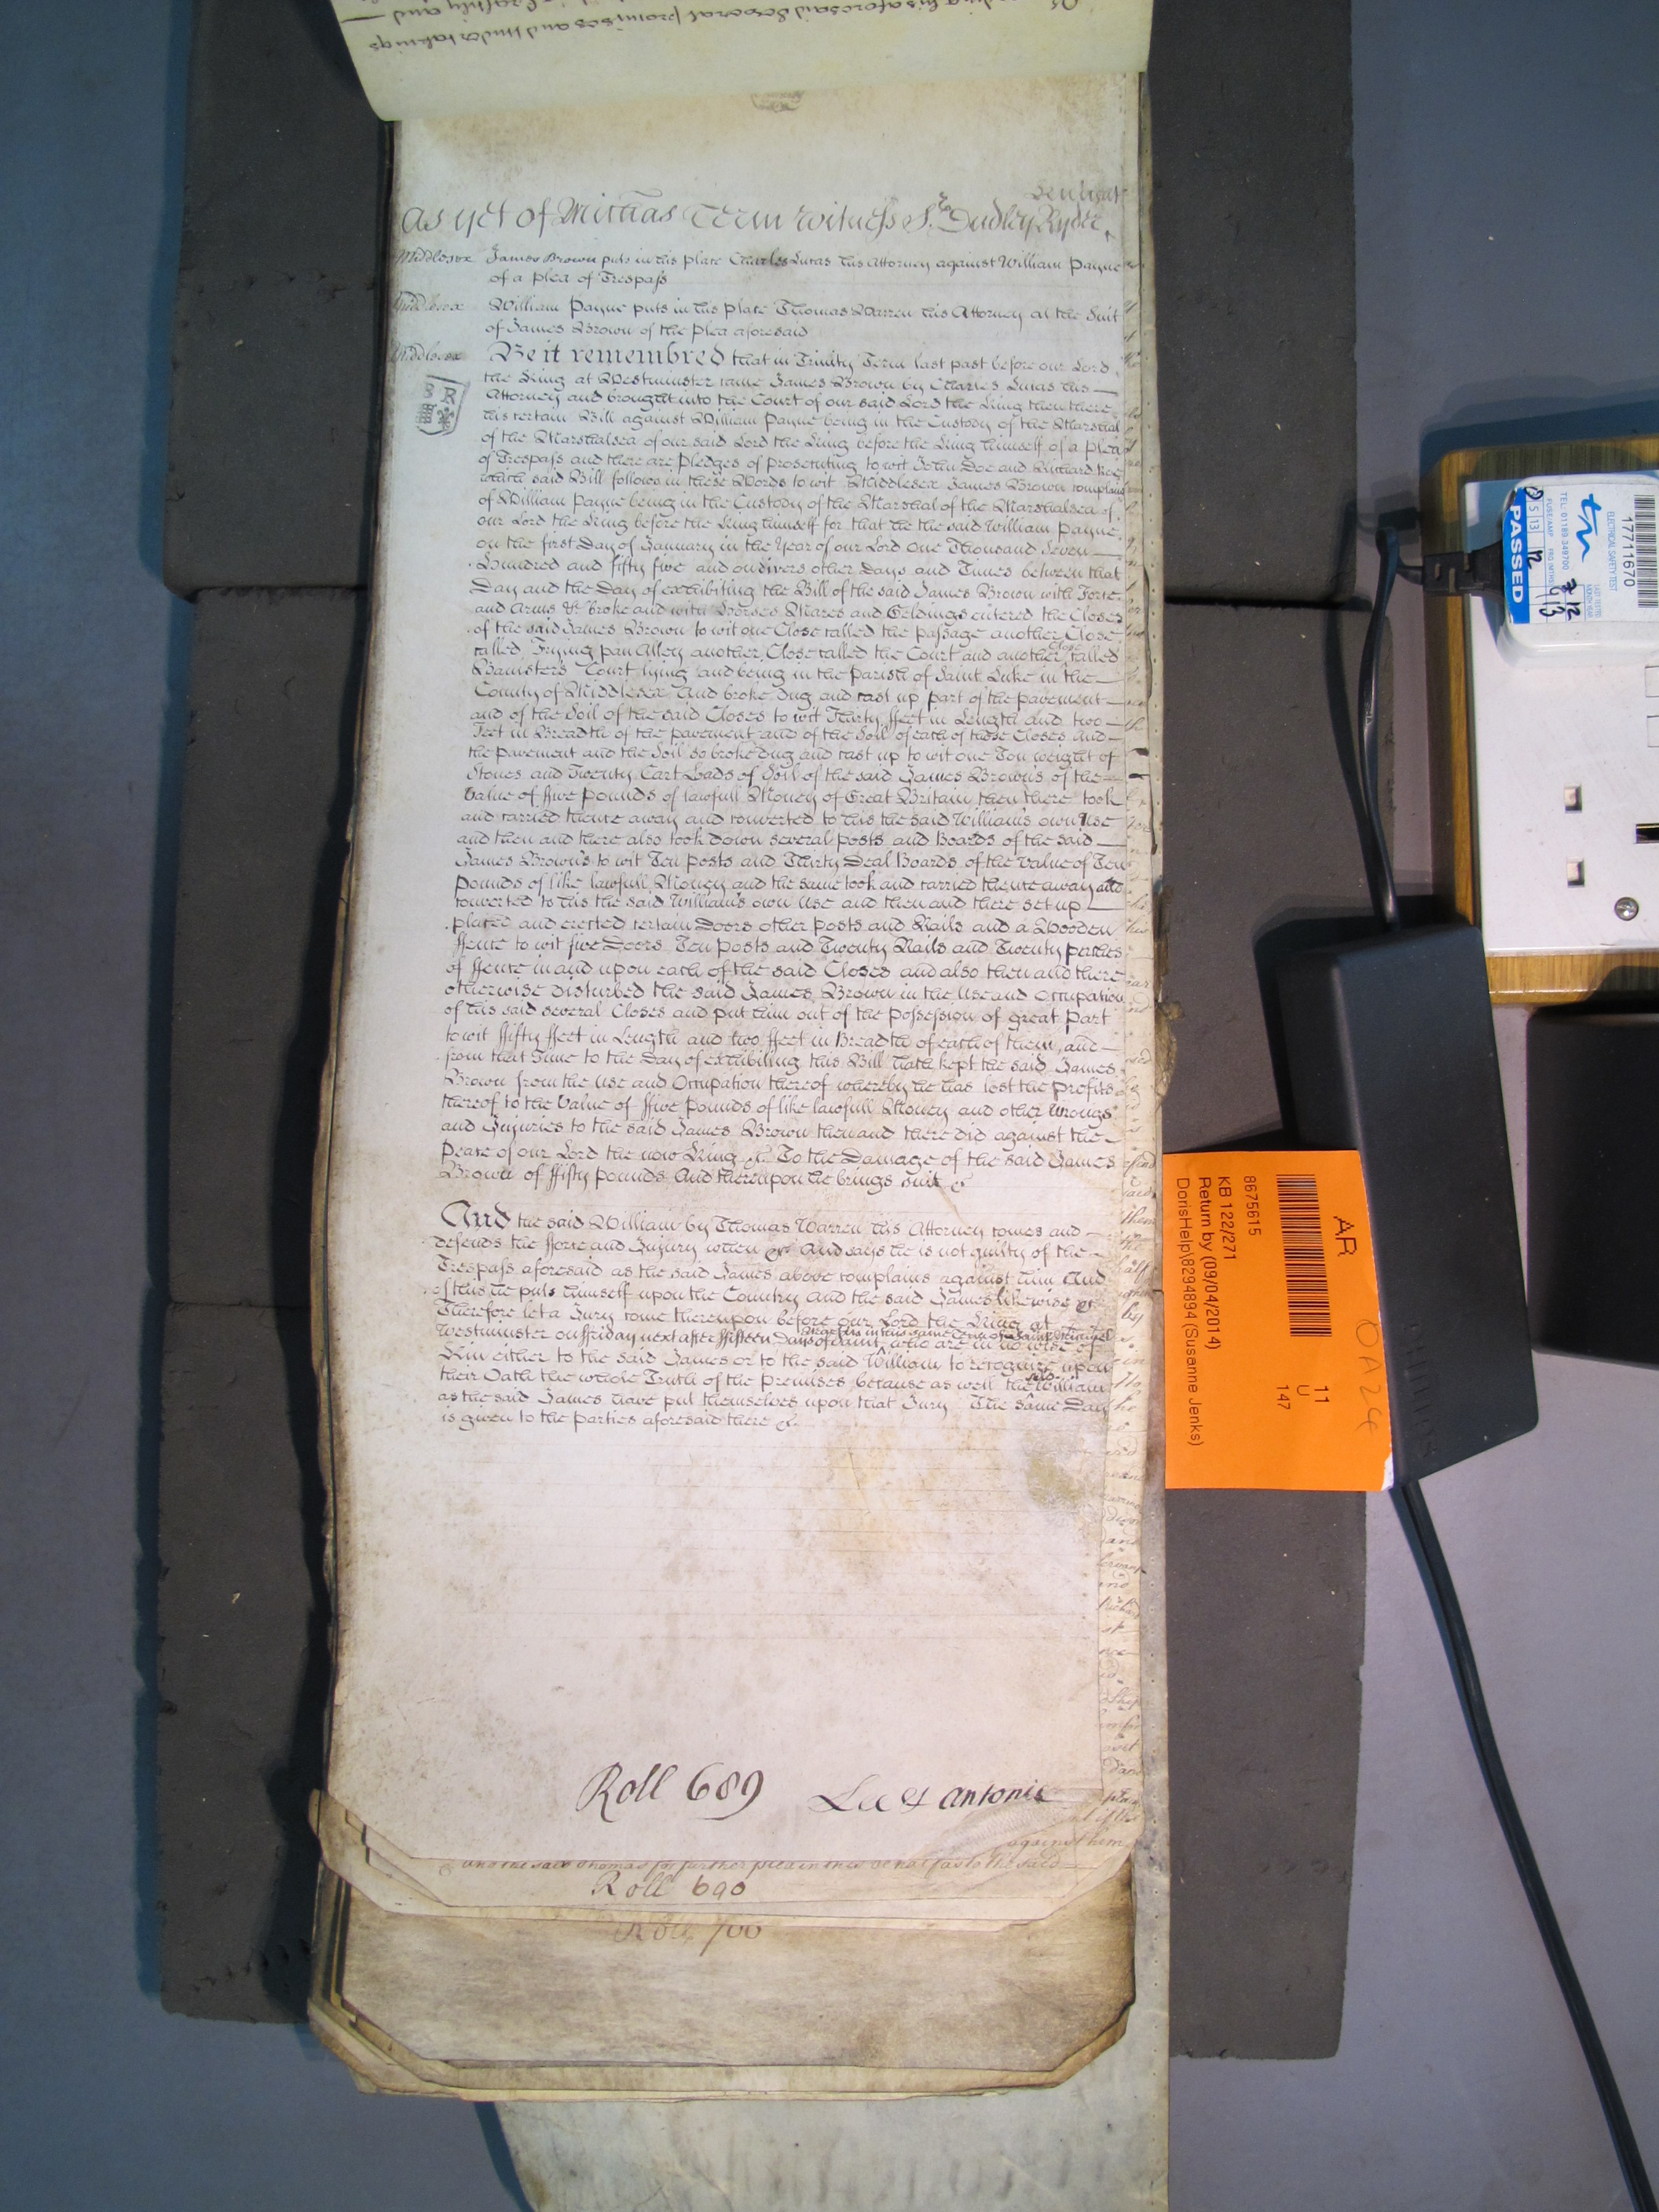 his aforesaid several promises and undertakings
craftily and
As yet of Mich'as Term Witness Sr. Dudley Ryder
Middlesex James Brown puts in his place Charles Lucas his Attorney against William Payne
of a plea of Trespass
Middlesex William Payne puts in his place Thomas Warren his Attorney at the Suit
of James Brown of the Plea aforesaid
Middlesex Be it remembred that in Trinity Term last past before our Lord
the King at Westminster came James Brown by Charles Lucas his
Attorney and brought into the Court of our said Lord the King then there
his certain Bill against William Payne being in the Custody of the Marshal
of the Marshalsea of our said Lord the King before the King himself of a plea
of Trespass and there are pledges of prosecuting to wit John Doe and Richard Roe
which said Bill follows in these Words to wit Middlesex James Brown complains
of William Payne being in the Custody of the Marshal of the Marshalsea of
our Lord the King before the King himself for that he the said William Payne
on the first Day of January in the Year of our Lord One Thousand Seven
Hundred and fifty five and on divers other Days and Times between that
Day and the Day of exhibiting the Bill of the said James Brown with Force
and Arms &c broke and with Horses Mares and Geldings entered the Closes
of the said James Brown to wit one Close called the passage another Close
called Frying pan Alley another Close called the Court and another Close called
Banisters Court lying and being in the Parish of Saint Luke in the
County of Middlesex And broke dug and cast up part of the pavement
and of the Soil of the said Closes to wit Thirty ffeet in Length and two
Feet in Breadth of the pavement and of the Soil of each of those Closes And
the pavement and the Soil so broke dug and cast up to wit one Ton weight of
Stones and Twenty Cart Loads of Soil of the said James Browns of the
value of ffive pounds of lawfull Money of Great Britain then there took
and carried thence away and converted to his the said Williams own Use
and then and there also took down several posts and Boards of the said
James Brown's to wit Ten posts and Thirty Deal Boards of the value of Ten
pounds of like lawfull Money and the same took and carried thence away and
converted to his the said Williams own Use and then and there set up
placed and erected certain Doors other posts and Rails and a Wooden
ffence to wit five Doors Ten posts and Twenty Rails and Twenty perches
of ffence in and upon each of the said Closes and also then and there
otherwise disturbed the said James Brown in the Use and Occupation
of his said several Closes and put him out of the Possession of great Part
to wit ffifty ffeet in Length and two ffeet in Breadth of each of them, and
from that Time to the Day of exhibiting this Bill hath kept the said James
Brown from the Use and Occupation thereof whereby he has lost the profits
thereof to the Value of ffive pounds of like lawfull Money and other Wrongs
and Injuries to the said James Brown then and there did against the
Peace of our Lord the now King &c To the Damage of the said James
Brown of ffifty pounds And thereupon he brings suit &c
And the said William by Thomas Warren his Attorney comes and
defends the fforce and Injury when &c And says he is not guilty of the
Trespass aforesaid as the said James above complains against him And
of this he puts himself upon the Country And the said James likewise &c
Therefore let a Jury come thereupon before our Lord the King at
Westminster on ffriday next after ffifteen Days of Saint who are in no wise of
Kin either to the said James or to the said William to recognize upon
their Oath the whole Truth of the Premises because as well the said William
as the said James have put themselves upon that Jury The same Day
is given to the Parties aforesaid there &c
Roll 689 Lee & Antonie
against them
and the said Thomas for further plea in this behalf as to the said
Roll 690
Roll 700
AR
8675615
KB 122/271
Return by (09/04/2014)
DorisHelp\8294894 (Susanne Jenks)
11
U
147
ELECTRICAL SAFETY TEST
17711670
TEL: 01189 349700
PASSED